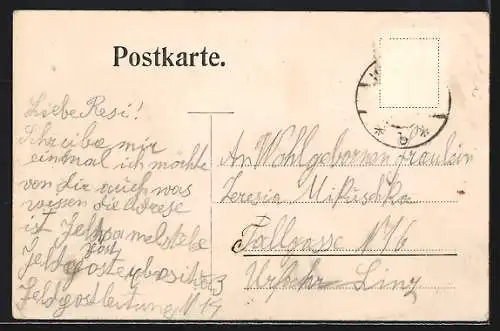 Postkarte.
Liebe Resi!
Schreibe mir
einmal ich möchte
von dir auch was
wissen die Adrese
ist Feldsamelstele
Feldpost
Feldpostleitung N 14
An Wohlgebornen Fraulein
Teresia Mikuschka
Fallgasse N 16
Urfahr Linz
b